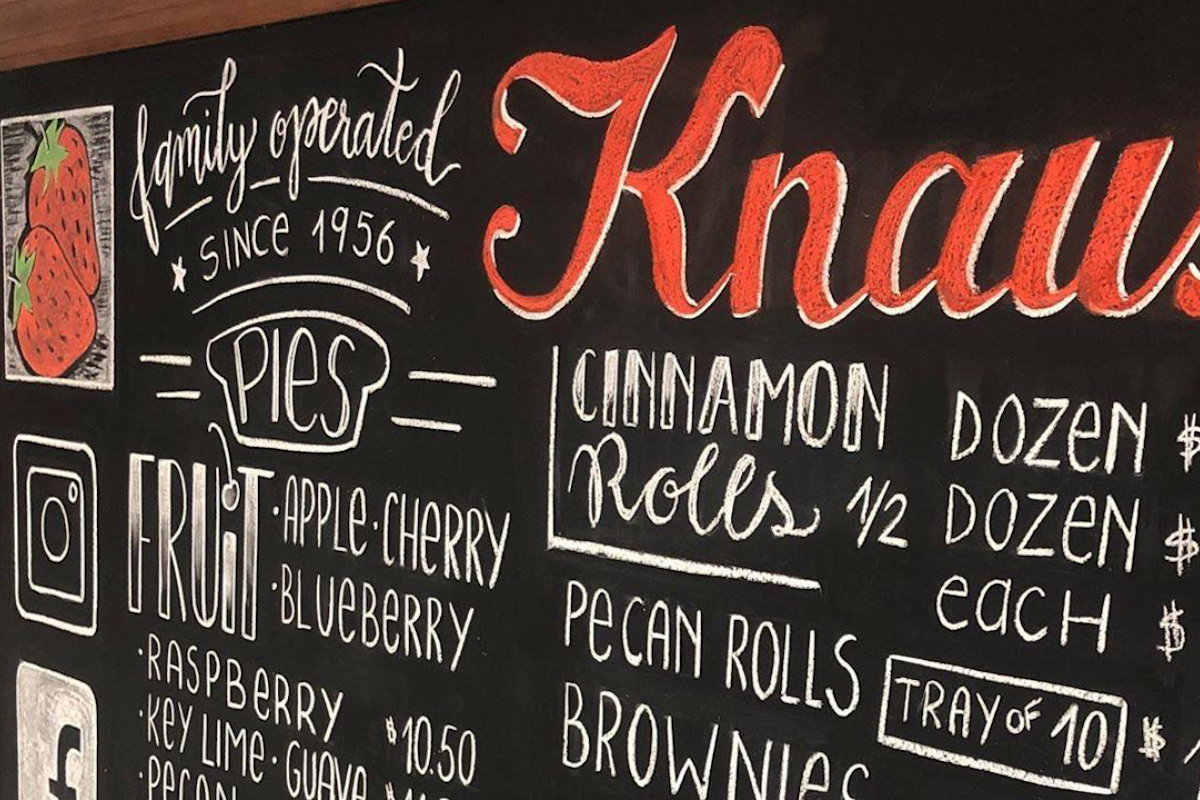 family operated
SINCE 1956
PIES
FRUIT
·APPLE·CHERRY
·BLUEBERRY
·RASPBERRY
·KEY LIME·GUAVA $10.50
·PECAN
Knaus
CINNAMON
Rolls
DOZEN $
1/2 DOZEN $
each $
PECAN ROLLS
TRAY OF 10 $
BROWNIES
f